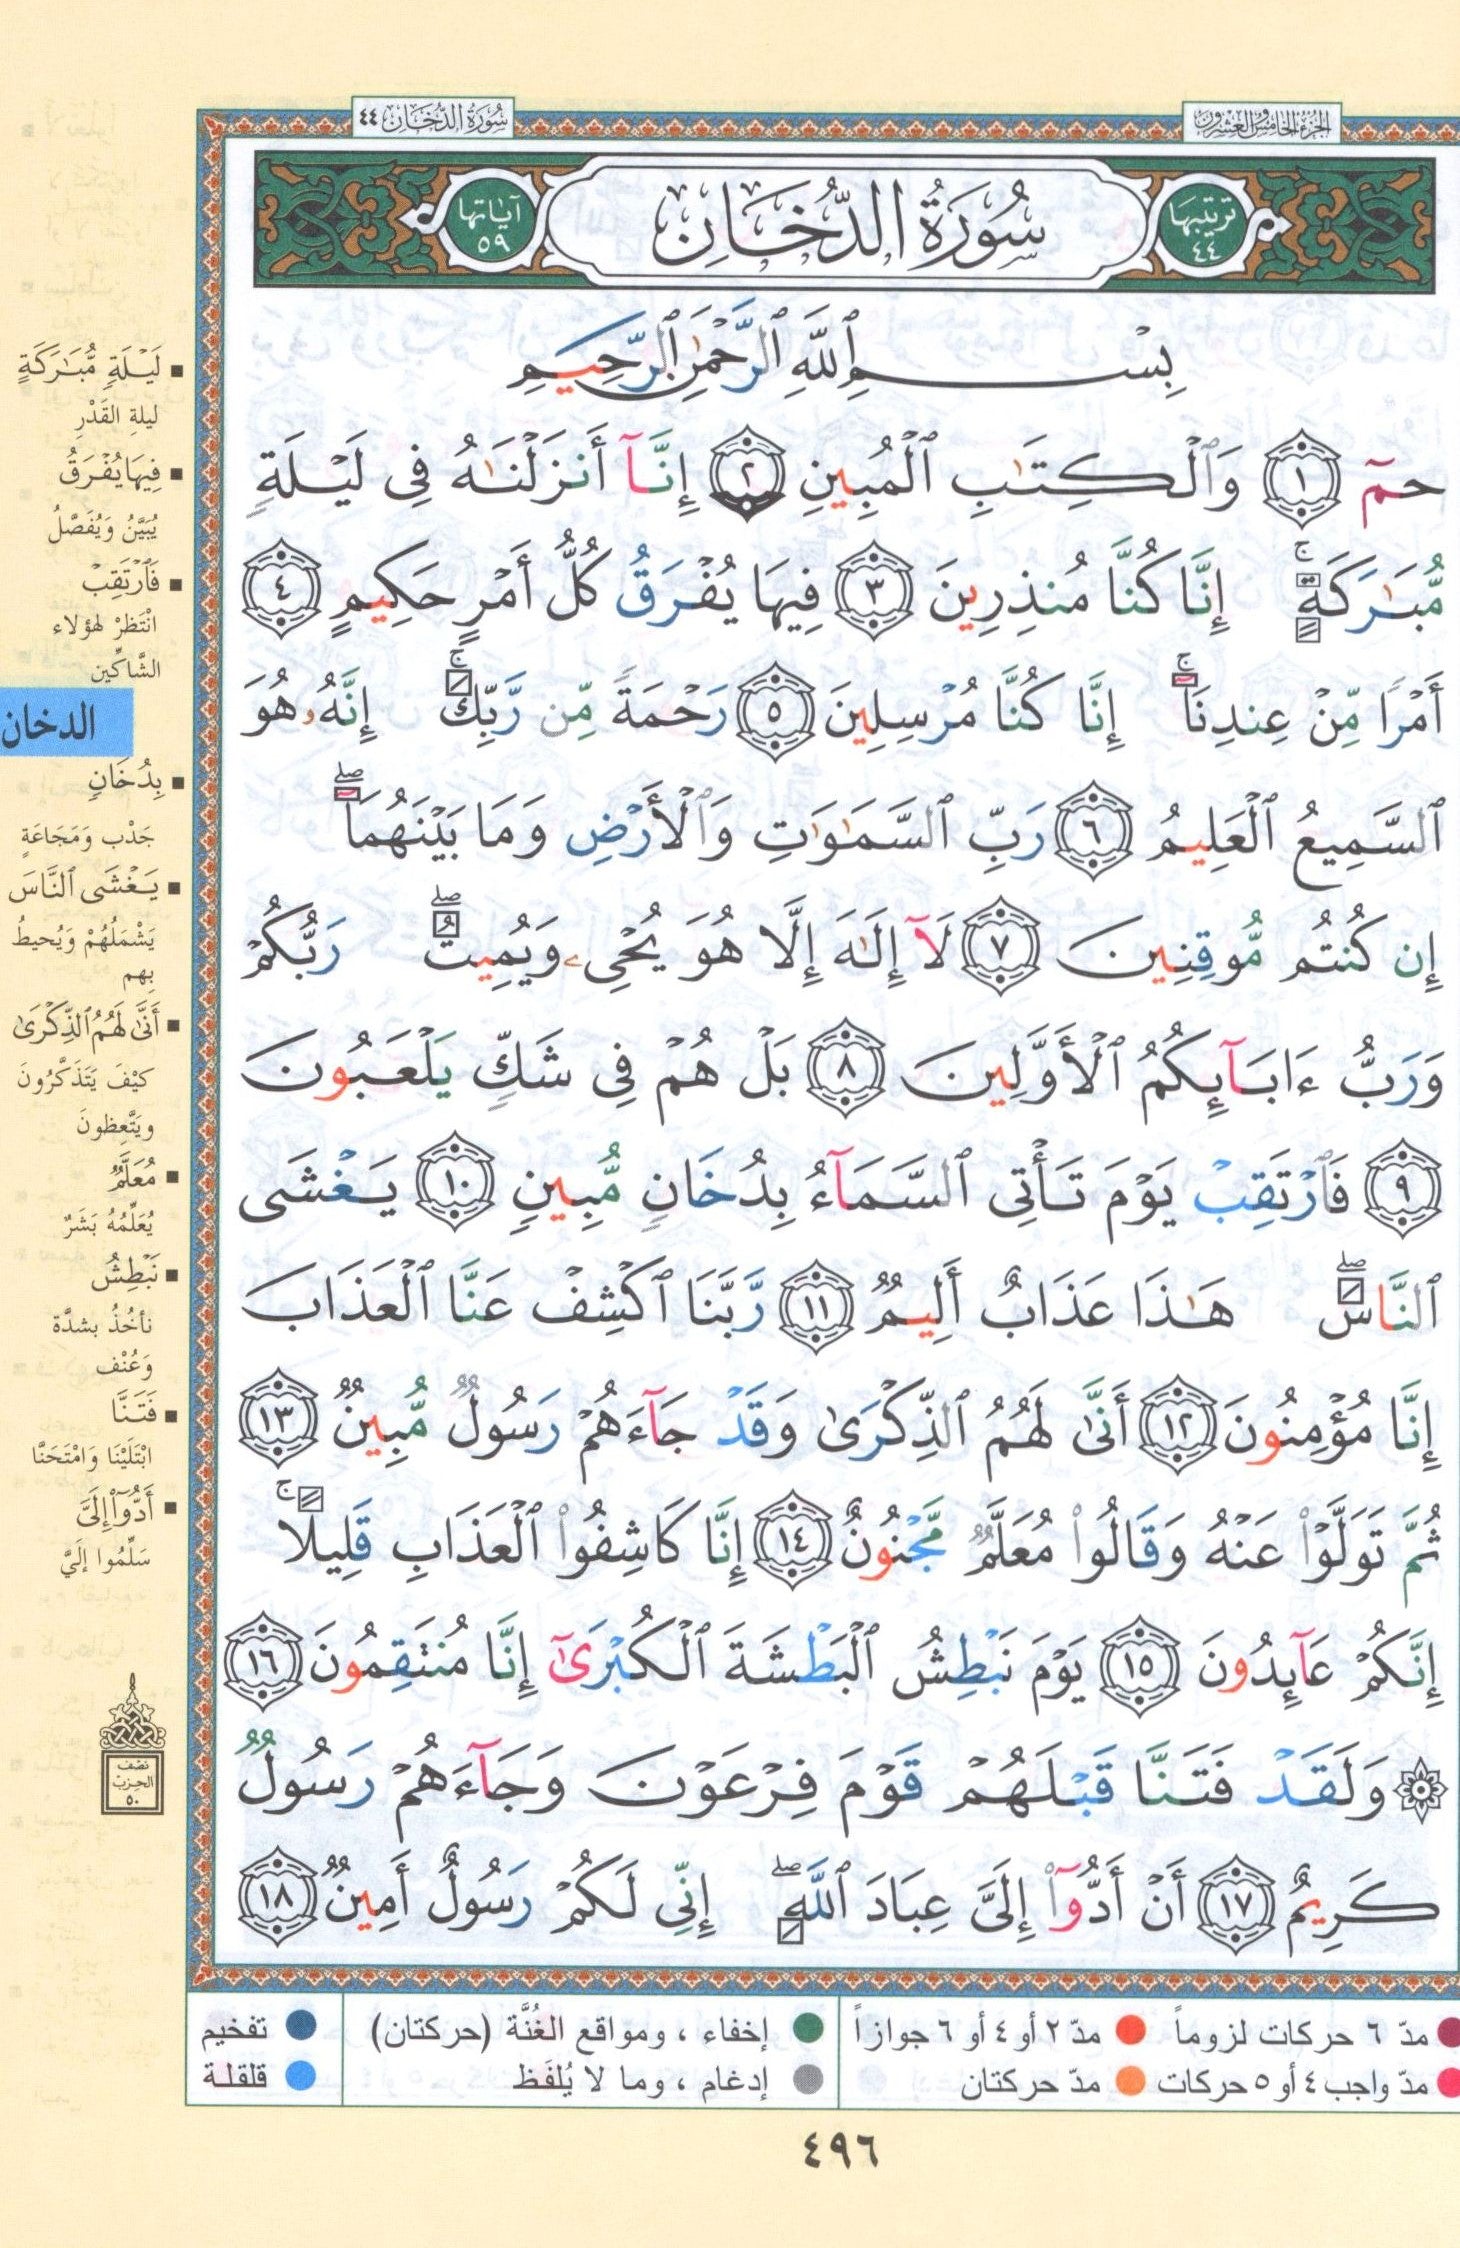 الجزء الخامس والعشرون
سُورَةُ الدُّخَان ٤٤
ترتيبها
٤٤
سُورَةُ الدُّخَانِ
آياتها
٥٩
بِسْمِ ٱللَّهِ ٱلرَّحْمَٰنِ ٱلرَّحِيمِ
حمٓ ١ وَٱلْكِتَٰبِ ٱلْمُبِينِ ٢ إِنَّآ أَنزَلْنَٰهُ فِى لَيْلَةٍ
مُّبَٰرَكَةٍ ۚ إِنَّا كُنَّا مُنذِرِينَ ٣ فِيهَا يُفْرَقُ كُلُّ أَمْرٍ حَكِيمٍ ٤
أَمْرًا مِّنْ عِندِنَآ ۚ إِنَّا كُنَّا مُرْسِلِينَ ٥ رَحْمَةً مِّن رَّبِّكَ ۚ إِنَّهُۥ هُوَ
ٱلسَّمِيعُ ٱلْعَلِيمُ ٦ رَبِّ ٱلسَّمَٰوَٰتِ وَٱلْأَرْضِ وَمَا بَيْنَهُمَآ ۖ
إِن كُنتُم مُّوقِنِينَ ٧ لَآ إِلَٰهَ إِلَّا هُوَ يُحْىِۦ وَيُمِيتُ ۖ رَبُّكُمْ
وَرَبُّ ءَابَآئِكُمُ ٱلْأَوَّلِينَ ٨ بَلْ هُمْ فِى شَكٍّ يَلْعَبُونَ
٩ فَٱرْتَقِبْ يَوْمَ تَأْتِى ٱلسَّمَآءُ بِدُخَانٍ مُّبِينٍ ١٠ يَغْشَى
ٱلنَّاسَ ۖ هَٰذَا عَذَابٌ أَلِيمٌ ١١ رَّبَّنَا ٱكْشِفْ عَنَّا ٱلْعَذَابَ
إِنَّا مُؤْمِنُونَ ١٢ أَنَّىٰ لَهُمُ ٱلذِّكْرَىٰ وَقَدْ جَآءَهُمْ رَسُولٌ مُّبِينٌ ١٣
ثُمَّ تَوَلَّوْا۟ عَنْهُ وَقَالُوا۟ مُعَلَّمٌ مَّجْنُونٌ ١٤ إِنَّا كَاشِفُوا۟ ٱلْعَذَابِ قَلِيلًا ۚ
إِنَّكُمْ عَآئِدُونَ ١٥ يَوْمَ نَبْطِشُ ٱلْبَطْشَةَ ٱلْكُبْرَىٰٓ إِنَّا مُنتَقِمُونَ ١٦
۞ وَلَقَدْ فَتَنَّا قَبْلَهُمْ قَوْمَ فِرْعَوْنَ وَجَآءَهُمْ رَسُولٌ
كَرِيمٌ ١٧ أَنْ أَدُّوٓا۟ إِلَىَّ عِبَادَ ٱللَّهِ ۖ إِنِّى لَكُمْ رَسُولٌ أَمِينٌ ١٨
▪ لَيْلَةٍ مُّبَٰرَكَةٍ
ليلةِ القَدْرِ
▪ فِيهَا يُفْرَقُ
يُبَيَّنُ وَيُفَصَّلُ
▪ فَٱرْتَقِبْ
انْتَظِرْ لهؤلاء
الشَّاكِّين
الدخان
▪ بِدُخَانٍ
جَدْب وَمَجَاعَةٍ
▪ يَغْشَى ٱلنَّاسَ
يَشْمَلُهُمْ وَيُحيطُ
بِهم
▪ أَنَّىٰ لَهُمُ ٱلذِّكْرَىٰ
كَيْفَ يَتَذَكَّرُونَ
ويَتَّعِظونَ
▪ مُعَلَّمٌ
يُعَلِّمُهُ بَشَرٌ
▪ نَبْطِشُ
نأخُذُ بشدَّة
وَعُنْف
▪ فَتَنَّا
ابْتَلَيْنَا وَامْتَحَنَّا
▪ أَدُّوٓا۟ إِلَىَّ
سَلِّمُوا إِلَيَّ
نصف
الحزب
٥٠
مدّ ٦ حركات لزوماً مدّ ٢ أو ٤ أو ٦ جوازاً إخفاء ، ومواقع الغُنَّة (حركتان) تفخيم
مدّ واجب ٤ أو ٥ حركات مدّ حركتان إدغام ، وما لا يُلفَظ قلقلة
٤٩٦